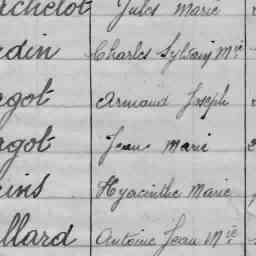 achelot Jules Marie
din Charles Sylvain Mie
agot Armand Joseph
agot Jean Marie
ins Hyacinthe Marie
llard Antoine Jean Mie